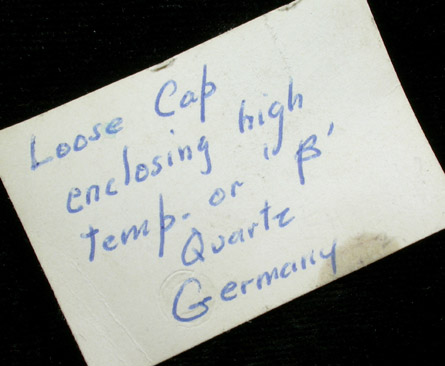 Loose Cap
enclosing high
temp. or "β'
Quartz
Germany